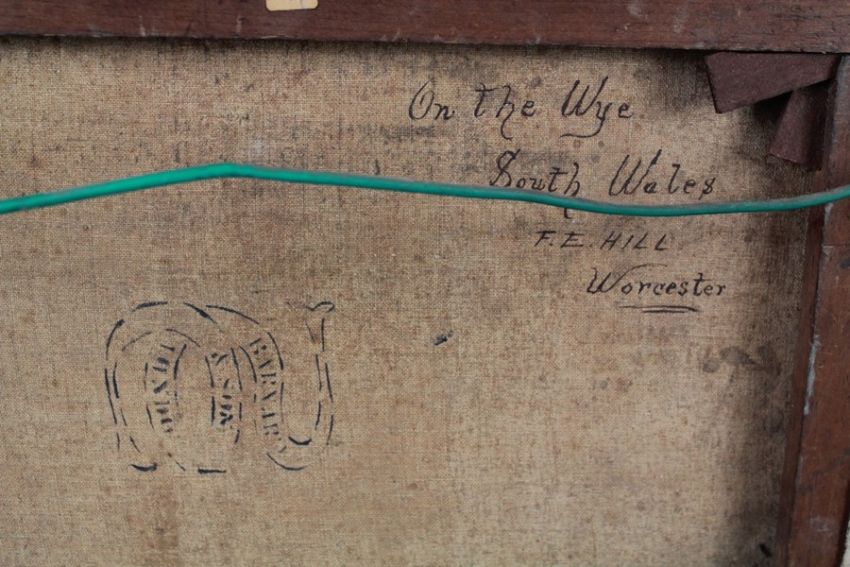 On the Wye
South Wales
F. E. HILL
Worcester
& SON